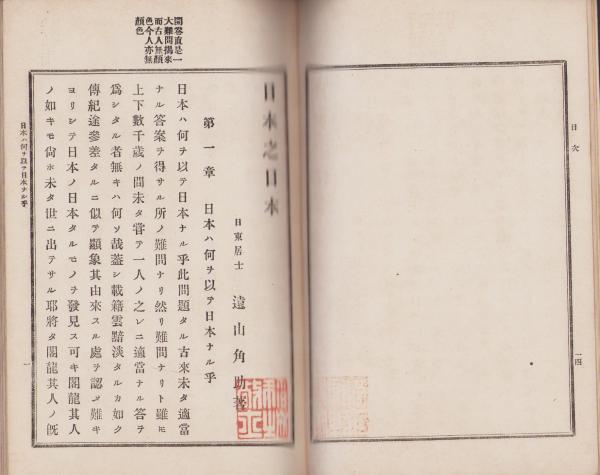 日次
一四
開卷直是一
大難問揭來
而古人無顏
色今人亦無
顏色
日本之日本
日東居士 遠山角助著
第一章 日本ハ何ヲ以テ日本ナル乎
日本ハ何ヲ以テ日本ナル乎此問題タル古來未タ適當
ナル答案ヲ得サル所ノ難問ナリ然リ難問ナリト雖モ
上下數千歲ノ間未タ嘗テ一人ノ之レニ適當ナル答ヲ
爲シタル者無キハ何ソ哉蓋シ載籍雲黯淡タルカ如ク
傳紀途參差タルニ似ヲ顯象其由來スル處ヲ認メ難キ
ヨリシテ日本ノ日本タルモノヲ發見ス可キ閣龍其人
ノ如キモ尙ホ未タ世ニ出テサル耶將タ閣龍其人ノ旣
日本ハ何ヲ以テ日本ナル乎
一